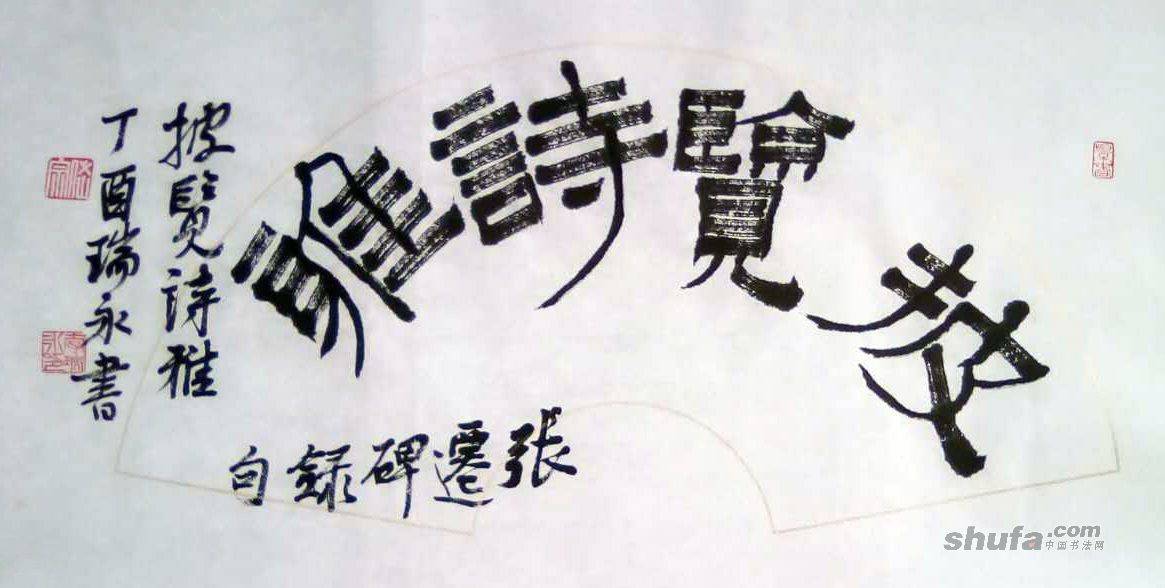 披覽詩雅
張遷碑錄句
披覽詩雅
丁酉瑞永書
shufa.com
中国书法网